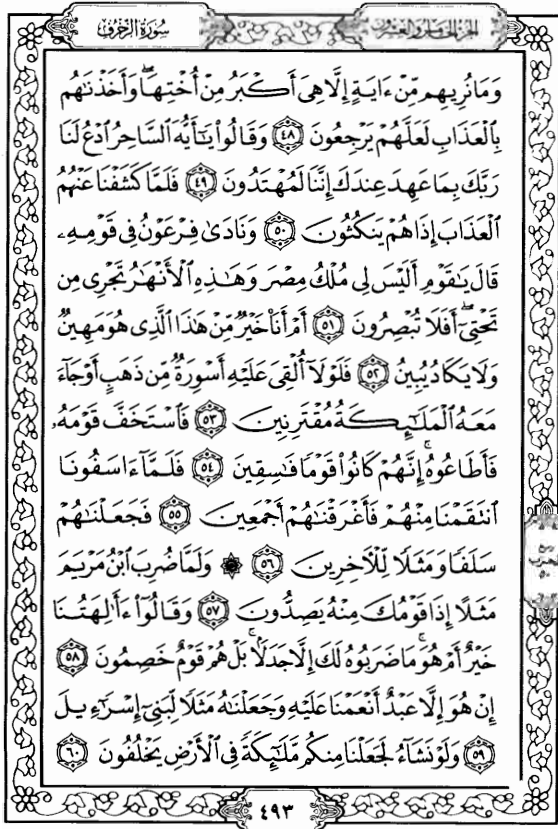 سُورَةُ الزُّخْرُفِ
الجُزءُ الخَامِسُ وَالعِشْرُونَ
وَمَا نُرِيهِم مِّنْ ءَايَةٍ إِلَّا هِىَ أَكْبَرُ مِنْ أُخْتِهَا ۖ وَأَخَذْنَٰهُم
بِالْعَذَابِ لَعَلَّهُمْ يَرْجِعُونَ ٤٨ وَقَالُوا۟ يَٰٓأَيُّهَ السَّاحِرُ ادْعُ لَنَا
رَبَّكَ بِمَا عَهِدَ عِندَكَ إِنَّنَا لَمُهْتَدُونَ ٤٩ فَلَمَّا كَشَفْنَا عَنْهُمُ
الْعَذَابَ إِذَا هُمْ يَنكُثُونَ ٥٠ وَنَادَىٰ فِرْعَوْنُ فِى قَوْمِهِۦ
قَالَ يَٰقَوْمِ أَلَيْسَ لِى مُلْكُ مِصْرَ وَهَٰذِهِ الْأَنْهَٰرُ تَجْرِى مِن
تَحْتِىٓ ۖ أَفَلَا تُبْصِرُونَ ٥١ أَمْ أَنَا۠ خَيْرٌ مِّنْ هَٰذَا الَّذِى هُوَ مَهِينٌ
وَلَا يَكَادُ يُبِينُ ٥٢ فَلَوْلَآ أُلْقِىَ عَلَيْهِ أَسْوِرَةٌ مِّن ذَهَبٍ أَوْ جَآءَ
مَعَهُ الْمَلَٰٓئِكَةُ مُقْتَرِنِينَ ٥٣ فَاسْتَخَفَّ قَوْمَهُۥ
فَأَطَاعُوهُ ۚ إِنَّهُمْ كَانُوا۟ قَوْمًا فَٰسِقِينَ ٥٤ فَلَمَّآ ءَاسَفُونَا
انتَقَمْنَا مِنْهُمْ فَأَغْرَقْنَٰهُمْ أَجْمَعِينَ ٥٥ فَجَعَلْنَٰهُمْ
سَلَفًا وَمَثَلًا لِّلْءَاخِرِينَ ٥٦ ۞ وَلَمَّا ضُرِبَ ابْنُ مَرْيَمَ
مَثَلًا إِذَا قَوْمُكَ مِنْهُ يَصِدُّونَ ٥٧ وَقَالُوٓا۟ ءَأَٰلِهَتُنَا
خَيْرٌ أَمْ هُوَ ۚ مَا ضَرَبُوهُ لَكَ إِلَّا جَدَلًۢا ۚ بَلْ هُمْ قَوْمٌ خَصِمُونَ ٥٨
إِنْ هُوَ إِلَّا عَبْدٌ أَنْعَمْنَا عَلَيْهِ وَجَعَلْنَٰهُ مَثَلًا لِّبَنِىٓ إِسْرَٰٓءِيلَ
٥٩ وَلَوْ نَشَآءُ لَجَعَلْنَا مِنكُم مَّلَٰٓئِكَةً فِى الْأَرْضِ يَخْلُفُونَ ٦٠
٤٩٣